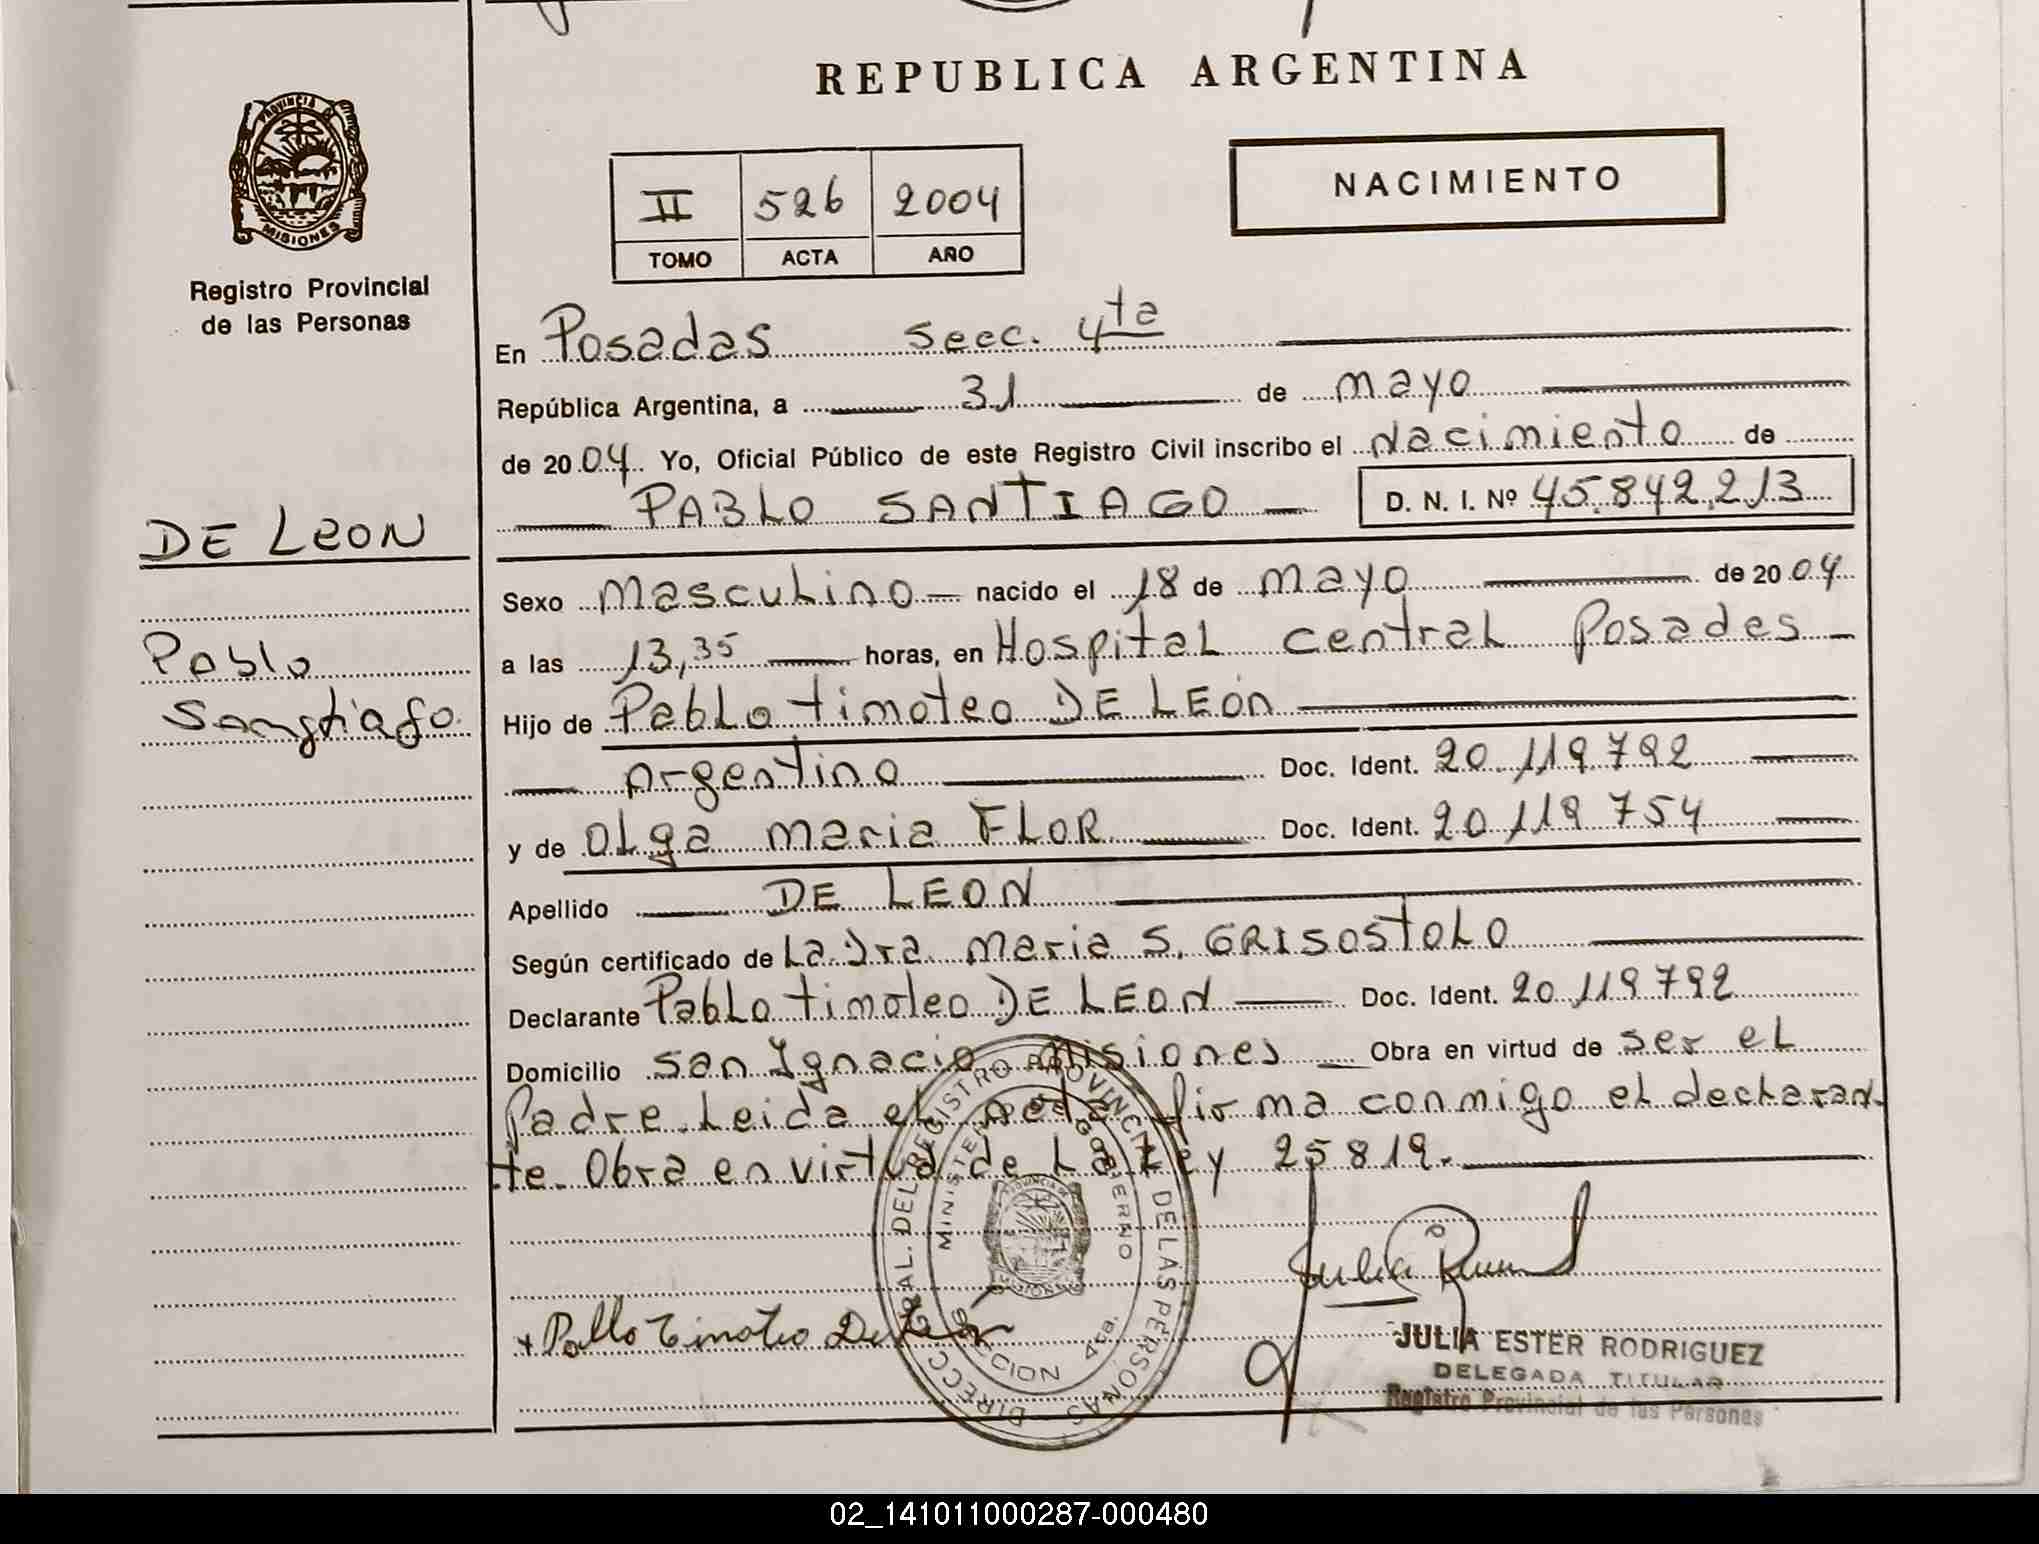 REPUBLICA ARGENTINA
PROVINCIA DE
MISIONES
Registro Provincial
de las Personas
II 526 2004
TOMO ACTA AÑO
NACIMIENTO
En Posadas Secc. 4ta
República Argentina, a 31 de mayo
de 2004 Yo, Oficial Público de este Registro Civil inscribo el nacimiento de
PABLO SANTIAGO D. N. I. Nº 45.842.213
DE LEON
Pablo
Sangtiago
Sexo masculino nacido el 18 de mayo de 2004
a las 13,35 horas, en Hospital central Posadas
Hijo de Pablo timoteo DE LEÓN
Argentino Doc. Ident. 20.119.792
y de OLga maria FLOR Doc. Ident. 20.119.754
Apellido DE LEON
Según certificado de La Dra. maria S. GRISOSTOLO
Declarante Pablo timoteo DE LEON Doc. Ident. 20.119.792
Domicilio san Ignacio misiones Obra en virtud de ser el
Padre. Leida el acta firma conmigo el declaran
te. Obra en virtud de La Ley 25819.
DIRECC GRAL. DEL REGISTRO PROVINCIAL DE LAS PERSONAS
MINISTERIO GOBIERNO
SECCION 4ta.
+ Pablo Timoteo De Leon
JULIA ESTER RODRIGUEZ
DELEGADA TITULAR
Registro Provincial de las Personas
02_141011000287-000480